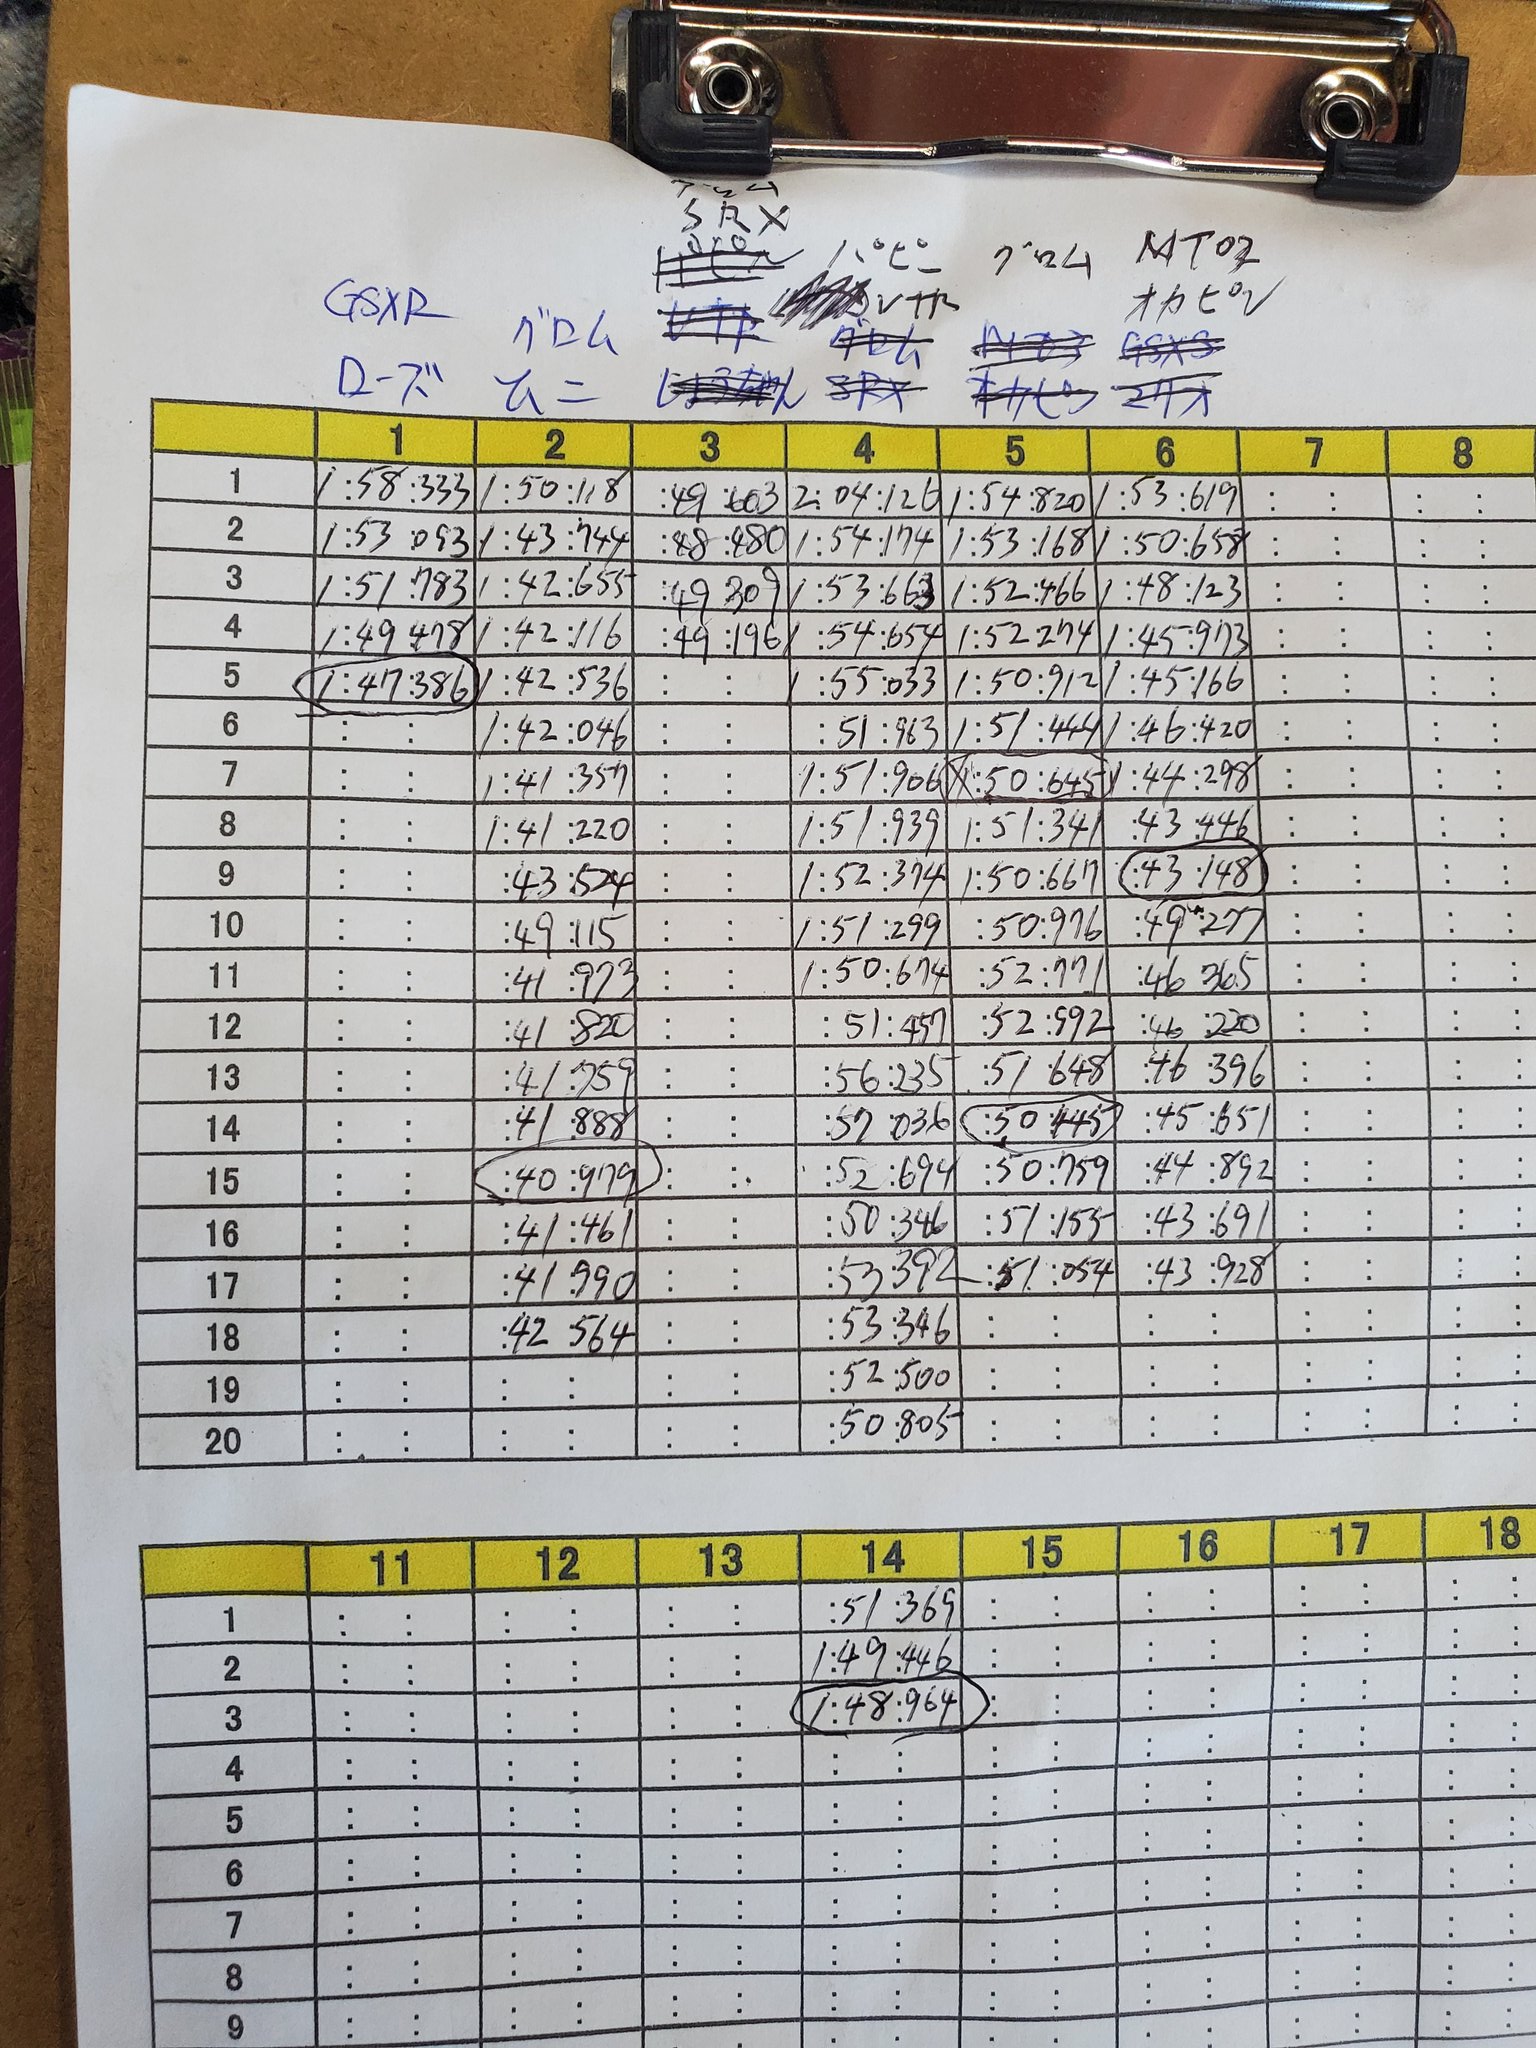 グロム
SRX
パピン グロム MT03
VTR オカピン
GSXR グロム
ローズ ムニ SRX
1 2 3 4 5 6 7 8
1 1:58:333 1:50:118 :49:603 2:04:126 1:54:820 1:53:619 : : : :
2 1:53 093 1:43:744 :48:480 1:54:174 1:53:168 1:50:658 : : : :
3 1:51:783 1:42:655 :49 309 1:53:663 1:52:466 1:48:123 : : : :
4 1:49 478 1:42:116 :49:196 1:54:654 1:52:274 1:45:973 : : : :
5 1:47:386 1:42:536 : : 1:55:033 1:50:912 1:45:166 : : : :
6 : : 1:42:046 : : :51:963 1:51:444 1:46:420 : : : :
7 : : 1:41:357 : : 1:51:906 1:50:645 1:44:298 : : : :
8 : : 1:41:220 : : 1:51:939 1:51:341 :43:446 : : : :
9 : : :43:524 : : 1:52:374 1:50:667 :43:148 : : : :
10 : : :49:115 : : 1:51:299 :50:976 :49:277 : : : :
11 : : :41:973 : : 1:50:674 :52:771 :46 365 : : : :
12 : : :41:820 : : :51:457 :52:992 :46:220 : : : :
13 : : :41:759 : : :56:235 :51 648 :46 396 : : : :
14 : : :41:888 : : :57:036 :50:445 :45:651 : : : :
15 : : :40:979 : : :52:694 :50:759 :44:892 : : : :
16 : : :41:461 : : :50:346 :51:155 :43:691 : : : :
17 : : :41:990 : : :53:392 :51:054 :43:928 : : : :
18 : : :42 564 : : :53:346 : : : : : : : :
19 : : : : : : :52:500 : : : : : : : :
20 : : : : : : :50:805 : : : : : : : :
11 12 13 14 15 16 17 18
1 : : : : : : :51:369 : : : : : : : :
2 : : : : : : 1:49:446 : : : : : : : :
3 : : : : : : 1:48:964 : : : : : : : :
4 : : : : : : : : : : : : : : : :
5 : : : : : : : : : : : : : : : :
6 : : : : : : : : : : : : : : : :
7 : : : : : : : : : : : : : : : :
8 : : : : : : : : : : : : : : : :
9 : : : : : : : : : : : : : : : :